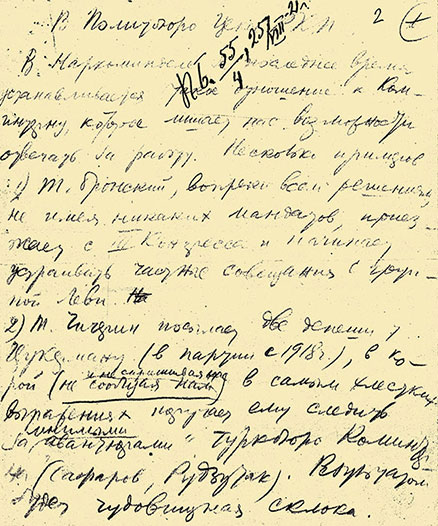 В Политбюро К П 2
П.б. 55/4, 25/VIII-21 г.
В Наркоминделе последнее время
устанавливается такое отношение к Ком-
интерну, которое лишает нас возможности
отвечать за работу. Несколько примеров
1) Т. Бронский, вопреки всем решениям,
не имея никаких мандатов, приез-
жает с III Конгресса и начинает
устраивать частные совещания с груп-
пой Леви. На
2) Т. Чичерин посылает две депеши т.
Цукерману (в партии с 1918 г.), в ко-
и не спрашивая нас
рой (не сообщая нам) в самых хлестких
выражениях поручает ему следить
за "авантюрами" Туркбюро Коминтер-
на (Сафаров, Рудзутак). В результате
будет чудовищная склока.